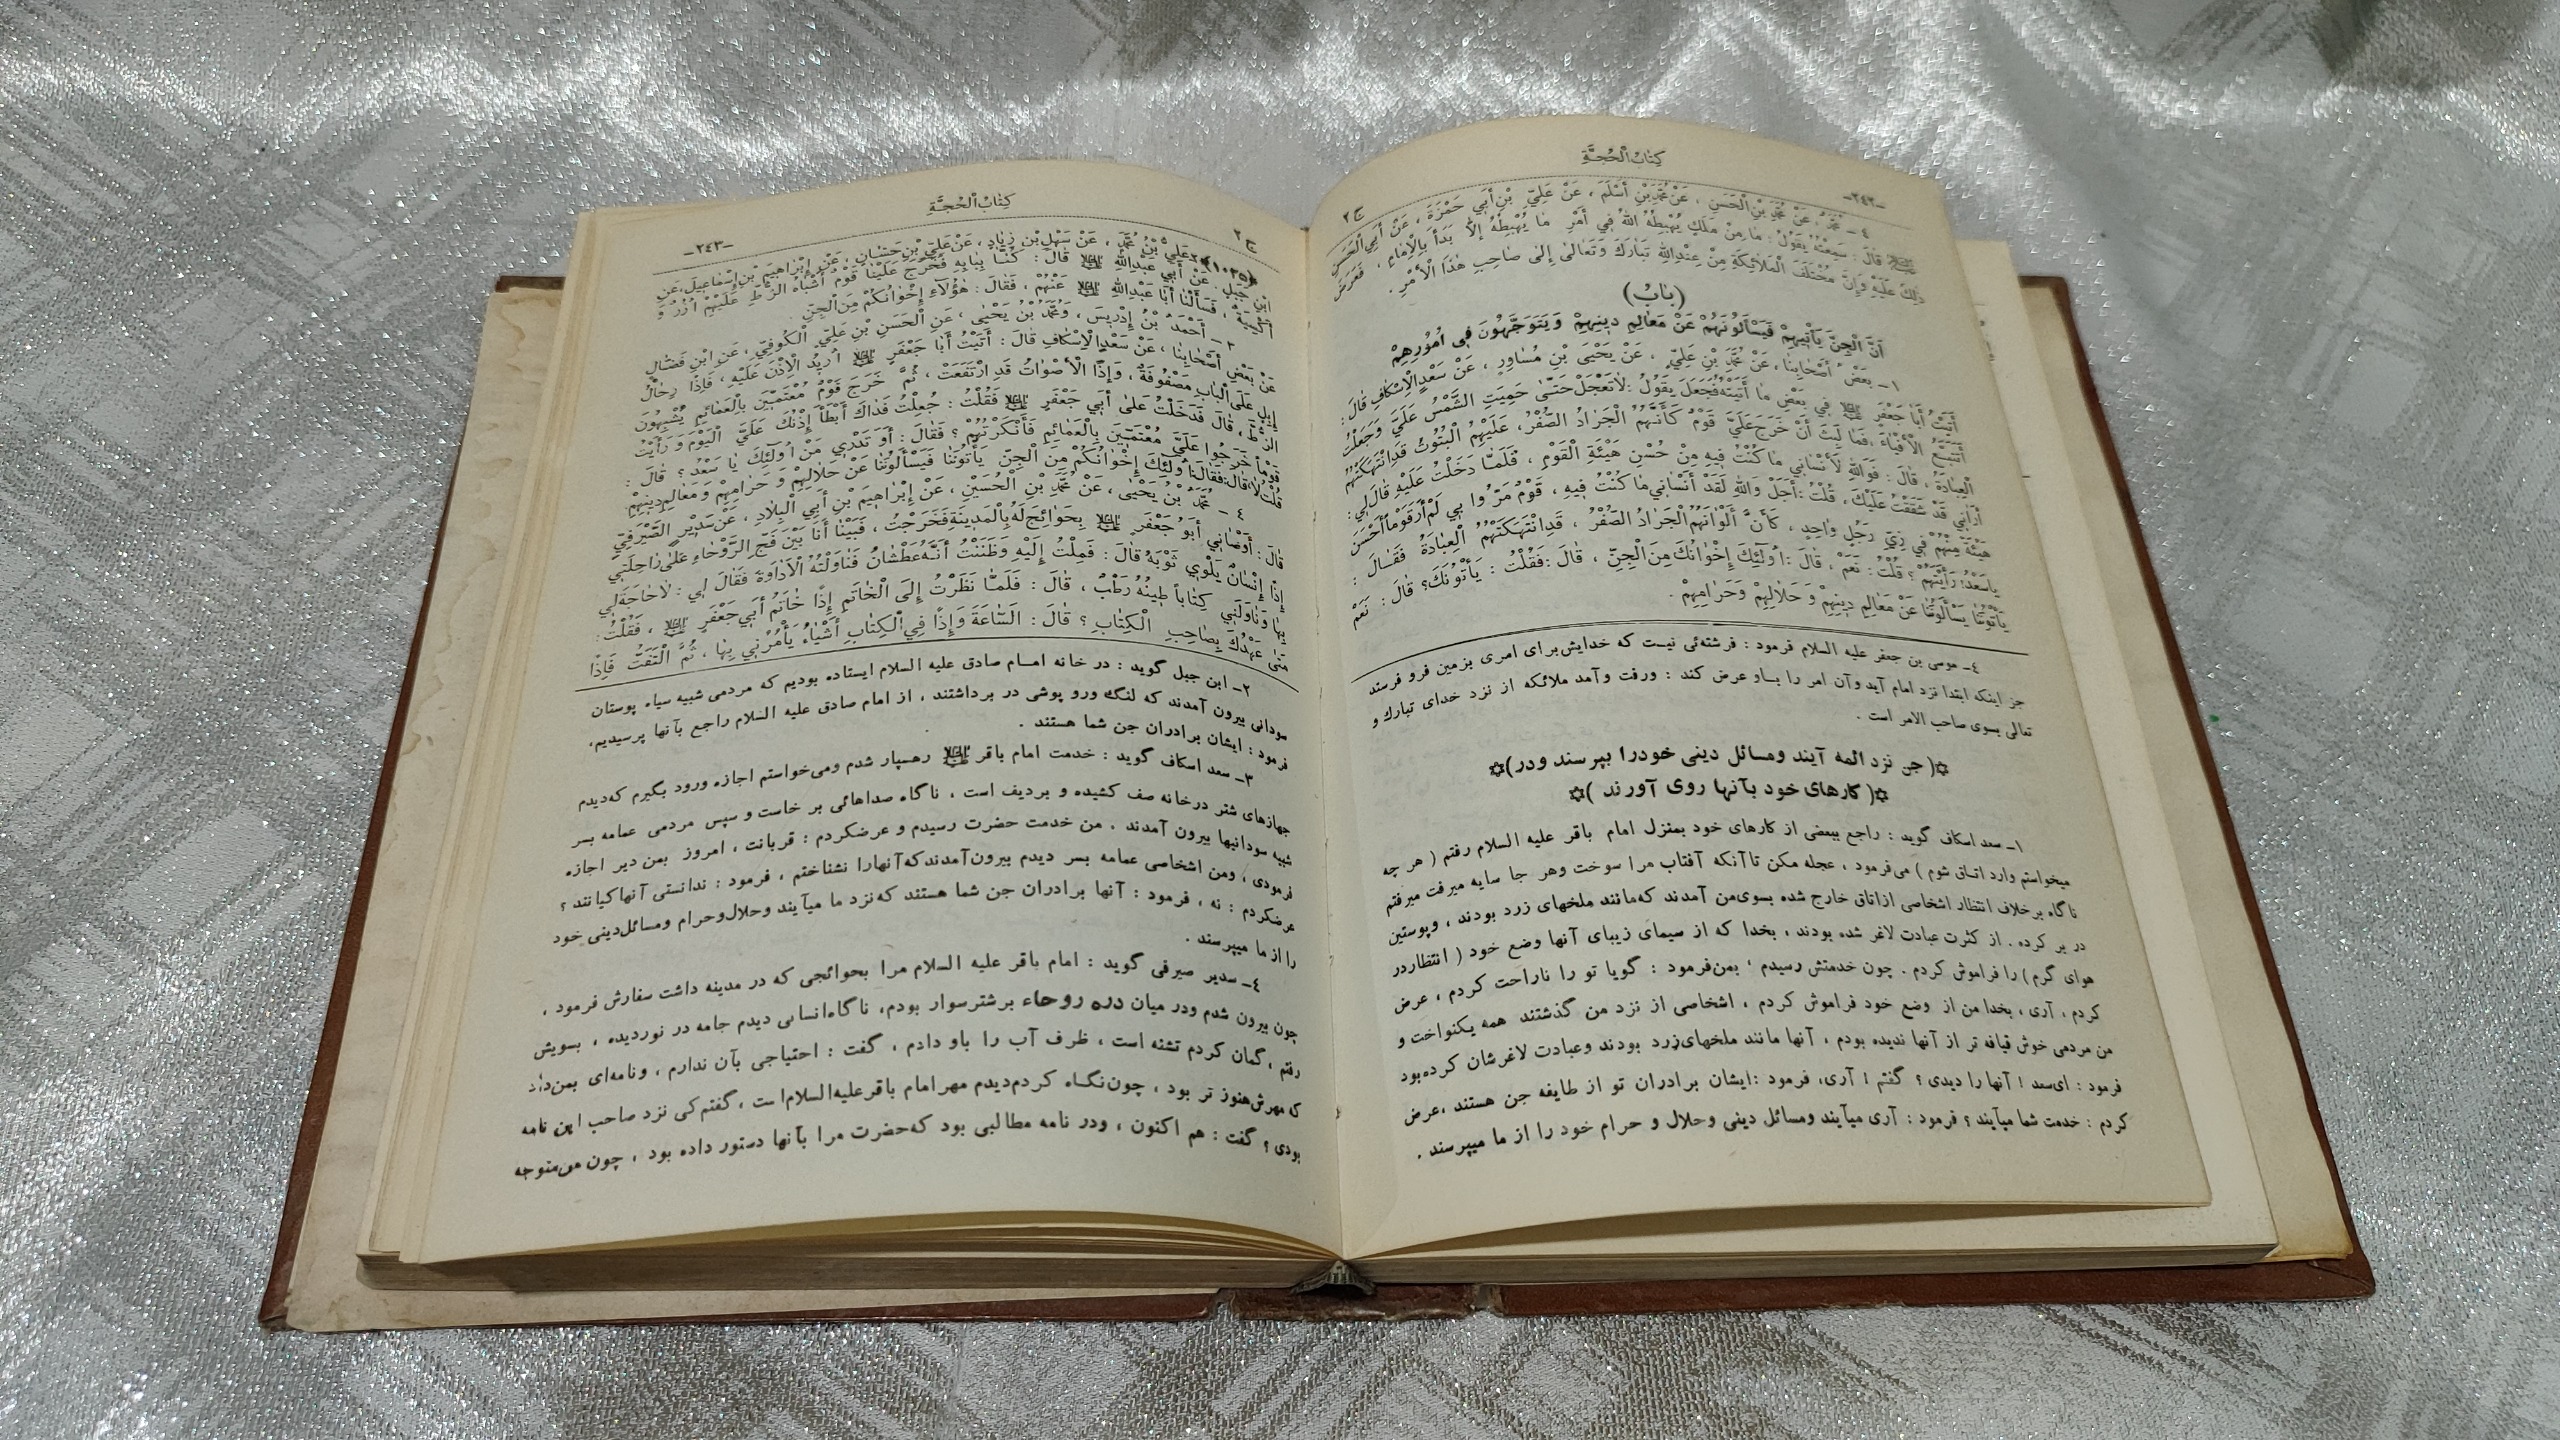 -٢٤٢-
كِتٰابُ الْحُجَّةِ
ج ٢
٤ - مُحَمَّدٌ، عَنْ مُحَمَّدِ بْنِ الْحَسَنِ ، عَنْ مُحَمَّدِ بْنِ أَسْلَمَ ، عَنْ عَلِيِّ بْنِ أَبِي حَمْزَةَ ، عَنْ أَبِي الْحَسَنِ
قٰالَ : سَمِعْتُهُ يَقُولُ : مٰا مِنْ مَلَكٍ يُهْبِطُهُ اللهُ فِي أَمْرٍ مٰا يُهْبِطُهُ إِلاّٰ بَدَأَ بِالْاِمٰامِ ، فَعَرَضَ
ذٰلِكَ عَلَيْهِ وَإِنَّ مُخْتَلَفَ الْمَلاٰئِكَةِ مِنْ عِنْدِ اللهِ تَبٰارَكَ وَتَعٰالىٰ إِلىٰ صٰاحِبِ هٰذَا الْأَمْرِ .
(بٰابٌ)
أَنَّ الْجِنَّ يَأْتِيهِمْ فَيَسْأَلُونَهُمْ عَنْ مَعٰالِمِ دِينِهِمْ وَيَتَوَجَّهُونَ فِي اُمُورِهِمْ
١ - بَعْضُ أَصْحٰابِنٰا، عَنْ مُحَمَّدِ بْنِ عَلِيٍّ ، عَنْ يَحْيَى بْنِ مُسٰاوِرٍ ، عَنْ سَعْدٍ الْاِسْكٰافِ قٰالَ :
أَتَيْتُ أَبٰا جَعْفَرٍ فِي بَعْضِ مٰا أَتَيْتُهُ فَجَعَلَ يَقُولُ : لاٰتَعْجَلْ حَتّىٰ حَمِيَتِ الشَّمْسُ عَلَيَّ وَجَعَلْتُ
أَتَتَبَّعُ الْأَفْيٰاءَ ، فَمٰا لَبِثَ أَنْ خَرَجَ عَلَيَّ قَوْمٌ كَأَنَّهُمُ الْجَرٰادُ الصُّفْرُ، عَلَيْهِمُ الْبُتُوتُ قَدِ انْتَهَكَتْهُمُ
الْعِبٰادَةُ ، قٰالَ : فَوَاللهِ لَأَنْسٰانِي مٰا كُنْتُ فِيهِ مِنْ حُسْنِ هَيْئَةِ الْقَوْمِ ، فَلَمّٰا دَخَلْتُ عَلَيْهِ قٰالَ لِي :
أَرٰانِي قَدْ شَقَقْتُ عَلَيْكَ ، قُلْتُ : أَجَلْ وَاللهِ لَقَدْ أَنْسٰانِي مٰا كُنْتُ فِيهِ ، قَوْمٌ مَرُّوا بِي لَمْ أَرَ قَوْماً أَحْسَنَ
هَيْئَةً مِنْهُمْ فِي زِيِّ رَجُلٍ وٰاحِدٍ ، كَأَنَّ أَلْوٰانَهُمُ الْجَرٰادُ الصُّفْرُ ، قَدِ انْتَهَكَتْهُمُ الْعِبٰادَةُ فَقٰالَ :
يٰاسَعْدُ! رَأَيْتَهُمْ ؟ قُلْتُ : نَعَمْ ، قٰالَ : اُولٰئِكَ إِخْوٰانُكَ مِنَ الْجِنِّ ، قٰالَ : فَقُلْتُ : يَأْتُونَكَ؟ قٰالَ : نَعَمْ
يَأْتُونّٰا يَسْأَلُونّٰا عَنْ مَعٰالِمِ دِينِهِمْ وَ حَلاٰلِهِمْ وَحَرٰامِهِمْ .
٤- موسى بن جعفر عليه السلام فرمود : فرشته‌ئى نيست كه خدايش براى امرى بزمين فرو فرستد
جز اينكه ابتدا نزد امام آيد وآن امر را باو عرض كند : ورفت وآمد ملائكه از نزد خداى تبارك و
تعالى بسوى صاحب الامر است .
✡( جن نزد ائمه آيند ومسائل دينى خودرا بپرسند ودر)✡
✡( كارهاى خود بآنها روى آورند )✡
١- سعد اسكاف گويد : راجع ببعضى از كارهاى خود بمنزل امام باقر عليه السلام رفتم ( هر چه
ميخواستم وارد اتاق شوم ) مى‌فرمود ، عجله مكن تاآنكه آفتاب مرا سوخت وهر جا سايه ميرفت ميرفتم
ناگاه برخلاف انتظار اشخاصى ازاتاق خارج شده بسوى‌من آمدند كه‌مانند ملخهاى زرد بودند ، وپوستين
در بر كرده . از كثرت عبادت لاغر شده بودند ، بخدا كه از سيماى زيباى آنها وضع خود ( انتظاردر
هواى گرم ) را فراموش كردم . چون خدمتش رسيدم ، بمن‌فرمود : گويا تو را ناراحت كردم ، عرض
كردم ، آرى ، بخدا من از وضع خود فراموش كردم ، اشخاصى از نزد من گذشتند همه يكنواخت و
من مردمى خوش قيافه تر از آنها نديده بودم ، آنها مانند ملخهاى‌زرد بودند وعبادت لاغرشان كرده‌بود
فرمود : اى‌سعد ! آنها را ديدى ؟ گفتم ! آرى، فرمود :ايشان برادران تو از طايفه جن هستند ،عرض
كردم : خدمت شما ميآيند ؟ فرمود : آرى ميآيند ومسائل دينى وحلال و حرام خود را از ما ميپرسند .
ج ٢
كِتٰابُ الْحُجَّةِ
-٢٤٣-
﴿١٠٣٥﴾ ٢- عَلِيُّ بْنُ مُحَمَّدٍ ، عَنْ سَهْلِ بْنِ زِيٰادٍ ، عَنْ عَلِيِّ بْنِ حَسّٰانَ ، عَنْ إِبْرٰاهِيمَ بْنِ إِسْمٰاعِيلَ ، عَنِ
ابْنِ جَبَلٍ ، عَنْ أَبِي عَبْدِاللهِ قٰالَ : كُنّٰا بِبٰابِهِ فَخَرَجَ عَلَيْنٰا قَوْمٌ أَشْبٰاهُ الزُّطِّ عَلَيْهِمْ اُزُرٌ وَ
أَكْسِيَةٌ ، فَسَأَلْنٰا أَبٰا عَبْدِاللهِ عَنْهُمْ ، فَقٰالَ : هٰؤُلاٰءِ إِخْوٰانُكُمْ مِنَ الْجِنِّ .
٣ - أَحْمَدُ بْنُ إِدْرِيسَ ، وَمُحَمَّدُ بْنُ يَحْيىٰ ، عَنِ الْحَسَنِ بْنِ عَلِيٍّ الْكُوفِيِّ ، عَنِ ابْنِ فَضّٰالٍ
عَنْ بَعْضِ أَصْحٰابِنٰا ، عَنْ سَعْدٍ الْاِسْكٰافِ قٰالَ : أَتَيْتُ أَبٰا جَعْفَرٍ اُرِيدُ الْاِذْنَ عَلَيْهِ ، فَإِذٰا رِحٰالُ
إِبِلٍ عَلَى الْبٰابِ مَصْفُوفَةٌ ، وَإِذَا الْأَصْوٰاتُ قَدِ ارْتَفَعَتْ ، ثُمَّ خَرَجَ قَوْمٌ مُعْتَمِّينَ بِالْعَمٰائِمِ يُشْبِهُونَ
الزُّطَّ ، قٰالَ فَدَخَلْتُ عَلىٰ أَبِي جَعْفَرٍ فَقُلْتُ : جُعِلْتُ فِدٰاكَ أَبْطَأَ إِذْنُكَ عَلَيَّ الْيَوْمَ وَ رَأَيْتُ
قَوْماً خَرَجُوا عَلَيَّ مُعْتَمِّينَ بِالْعَمٰائِمِ فَأَنْكَرْتُهُمْ ؟ فَقٰالَ : أَوَ تَدْرِي مَنْ اُولٰئِكَ يٰا سَعْدُ ؟ قٰالَ :
قُلْتُ لاٰ، قٰالَ: فَقٰالَ: اُولٰئِكَ إِخْوٰانُكُمْ مِنَ الْجِنِّ يَأْتُونّٰا فَيَسْأَلُونّٰا عَنْ حَلاٰلِهِمْ وَ حَرٰامِهِمْ وَ مَعٰالِمِ دِينِهِمْ
٤ - مُحَمَّدُ بْنُ يَحْيىٰ ، عَنْ مُحَمَّدِ بْنِ الْحُسَيْنِ ، عَنْ إِبْرٰاهِيمَ بْنِ أَبِي الْبِلاٰدِ ، عَنْ سَدِيرٍ الصَّيْرَفِيِّ
قٰالَ : أَوْصٰانِي أَبُو جَعْفَرٍ بِحَوٰائِجَ لَهُ بِالْمَدِينَةِ فَخَرَجْتُ ، فَبَيْنٰا أَنَا بَيْنَ فَجِّ الرَّوْحٰاءِ عَلىٰ رٰاحِلَتِي
إِذٰا إِنْسٰانٌ يَلْوِي ثَوْبَهُ قٰالَ : فَمِلْتُ إِلَيْهِ وَظَنَنْتُ أَنَّهُ عَطْشٰانُ فَنٰاوَلْتُهُ الْاَدٰاوَةَ فَقٰالَ لِي : لاٰحٰاجَةَ لِي
بِهٰا وَنٰاوَلَنِي كِتٰاباً طِينُهُ رَطْبٌ ، قٰالَ : فَلَمّٰا نَظَرْتُ إِلَى الْخٰاتَمِ إِذٰا خٰاتَمُ أَبِي جَعْفَرٍ ، فَقُلْتُ :
مَتىٰ عَهْدُكَ بِصٰاحِبِ الْكِتٰابِ ؟ قٰالَ : السّٰاعَةَ وَإِذٰا فِي الْكِتٰابِ أَشْيٰاءُ يَأْمُرُنِي بِهٰا ، ثُمَّ الْتَفَتُّ فَإِذٰا
٢- ابن جبل گويد : در خانه امام صادق عليه السلام ايستاده بوديم كه مردمى شبيه سياه پوستان
سودانى بيرون آمدند كه لنگ ورو پوشى در برداشتند ، از امام صادق عليه السلام راجع بآنها پرسيديم،
فرمود : ايشان برادران جن شما هستند .
٣- سعد اسكاف گويد : خدمت امام باقر رهسپار شدم ومى‌خواستم اجازه ورود بگيرم كه‌ديدم
جهازهاى شتر درخانه صف كشيده و برديف است ، ناگاه صداهائى بر خاست و سپس مردمى عمامه بسر
شبيه سودانيها بيرون آمدند . من خدمت حضرت رسيدم و عرضكردم : قربانت ، امروز بمن دير اجازه
فرمودى ، ومن اشخاصى عمامه بسر ديدم بيرون‌آمدندكه‌آنهارا نشناختم ، فرمود : ندانستى آنهاكيانند ؟
عرضكردم : نه ، فرمود : آنها برادران جن شما هستند كه‌نزد ما ميآيند وحلال‌وحرام ومسائل‌دينى خود
را از ما ميپرسند .
٤- سدير صيرفى گويد : امام باقر عليه السلام مرا بحوائجى كه در مدينه داشت سفارش فرمود ،
چون بيرون شدم ودر ميان دره روحاء برشترسوار بودم، ناگاه‌انسانى ديدم جامه در نورديده ، بسويش
رفتم ،گمان كردم تشنه است ، ظرف آب را باو دادم ، گفت : احتياجى بآن ندارم ، ونامه‌اى بمن‌داد
كه مهرش‌هنوز تر بود ، چون‌نگاه كردم‌ديدم مهرامام باقرعليه‌السلام‌است ،گفتم‌كى نزد صاحب اين نامه
بودى ؟ گفت : هم اكنون ، ودر نامه مطالبى بود كه‌حضرت مرا بآنها دستور داده بود ، چون من‌متوجه